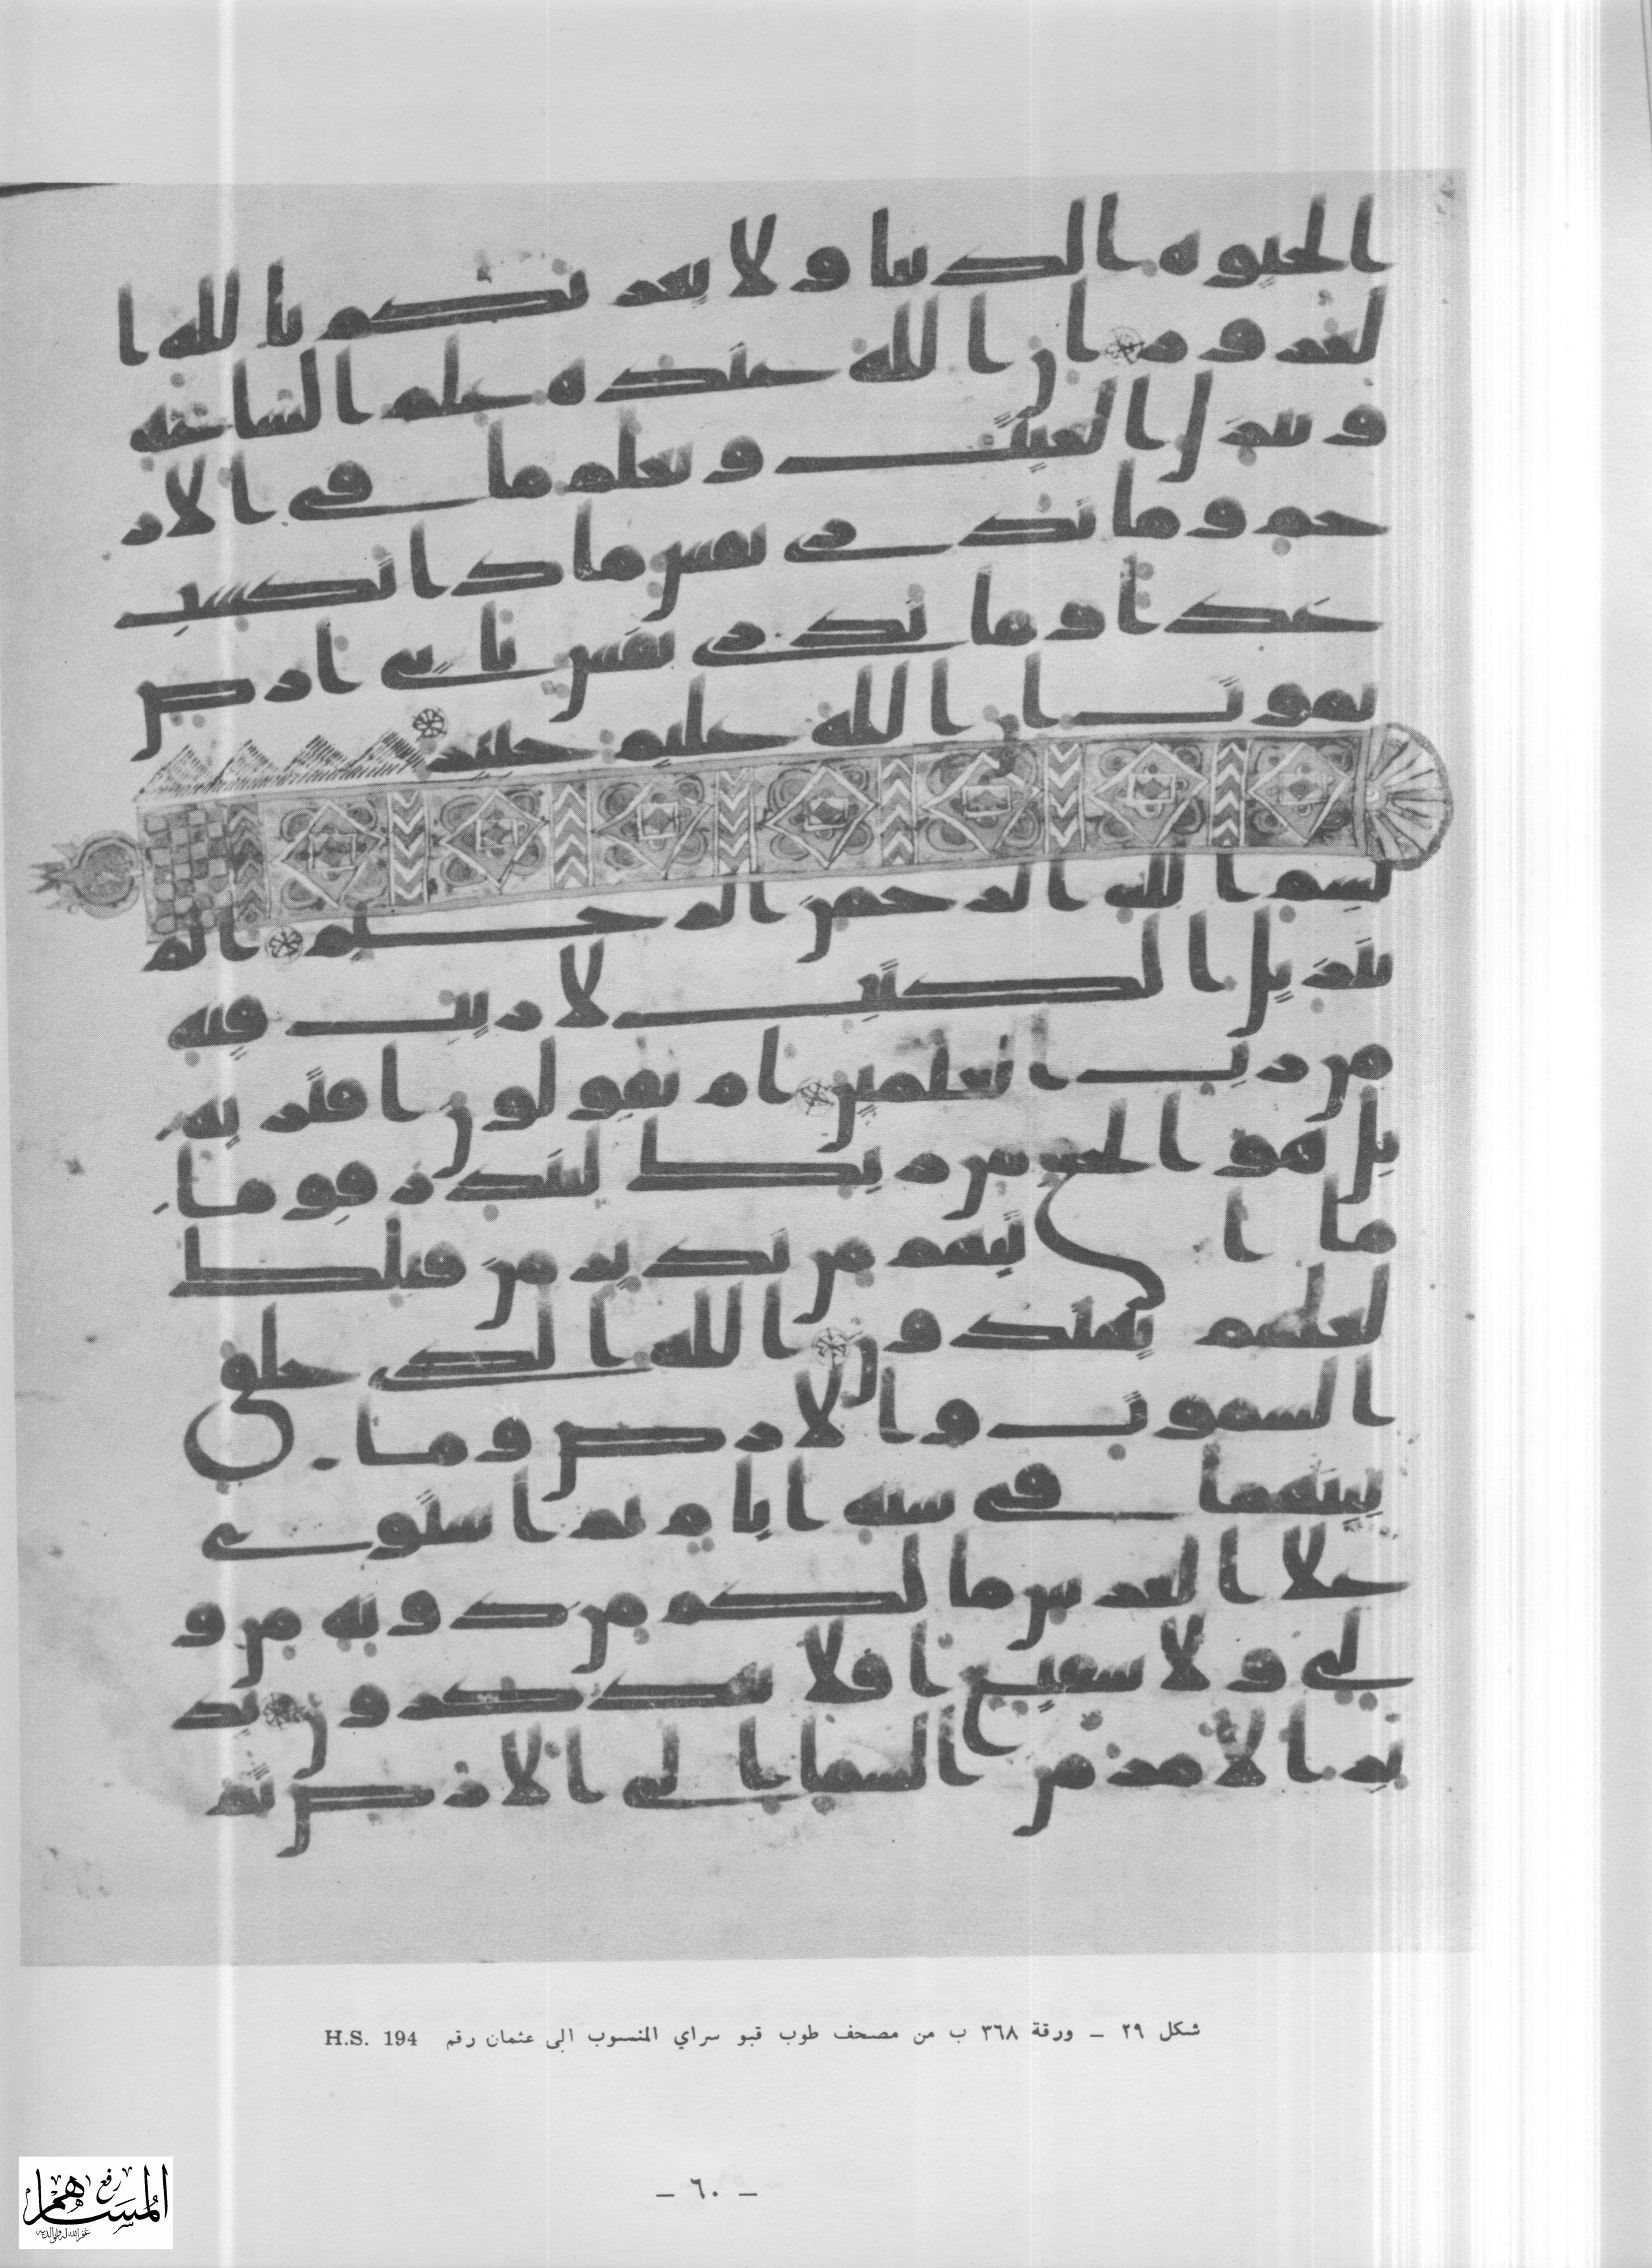 الحيوه الدنيا ولا يغر نكم با لله ا
لغرور ان الله عنده علم الساعه
وينزل الغيث ويعلم ما في الار
حم وما تدري نفس ماذا تكسب
غدا وما تدري نفس باي ارض
تموت ان الله عليم خبير
بسم الله الرحمن الرحيم الم
تنزيل الكتب لا ريب فيه
من رب العلمين ام يقولون افتريه
بل هو الحق من ربك لتنذر قوما
ما ا تيهم من نذير من قبلك
لعلهم يهتدون الله الذي خلق
السموت والارض وما
بينهما في سته ايام ثم استوى
علا العرش ما لكم من دونه من و
لي ولا شفيع افلا تتذكرون يد
بر الامر من السما الى الارض ثم
شكل ٢٩ ــ ورقة ٣٦٨ ب من مصحف طوب قبو سراي المنسوب الى عثمان رقم H.S. 194
ــ ٦٠ ــ
رفع
المساهم
غفر الله له ولوالديه